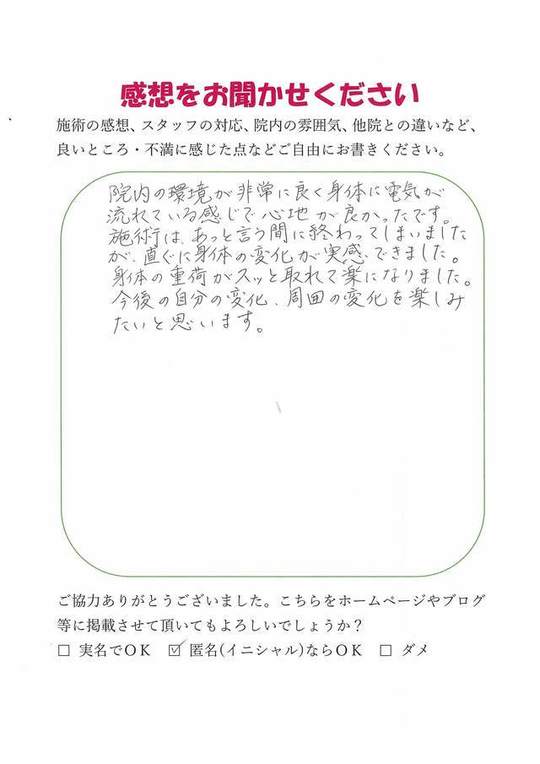 感想をお聞かせください
施術の感想、スタッフの対応、院内の雰囲気、他院との違いなど、
良いところ・不満に感じた点などご自由にお書きください。
院内の環境が非常に良く身体に電気が
流れている感じで心地が良かったです。
施術は、あっと言う間に終わってしまいました
が、直ぐに身体の変化が実感できました。
身体の重荷がスッと取れて楽になりました。
今後の自分の変化、周囲の変化を楽しみ
たいと思います。
ご協力ありがとうございました。こちらをホームページやブログ
等に掲載させて頂いてもよろしいでしょうか？
□ 実名でＯＫ ☑ 匿名(イニシャル)ならＯＫ □ ダメ